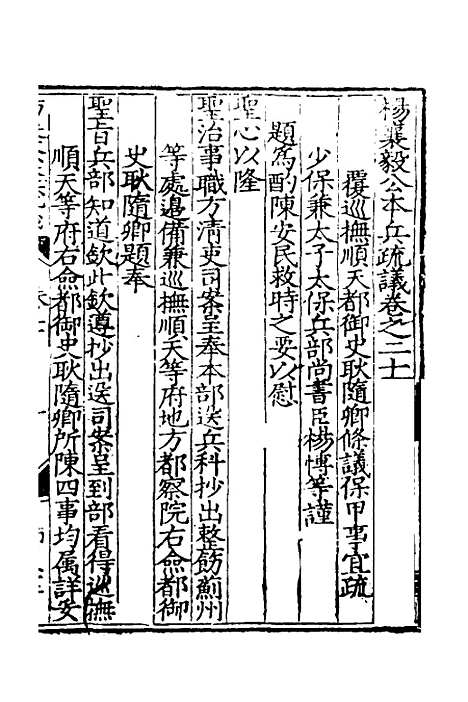 楊襄毅公本兵疏議卷之二十
覆巡撫順天都御史耿隨卿條議保甲事宜疏
少保兼太子太保兵部尚書臣楊博等謹
題為酌陳安民救時之要以慰
聖心以隆
聖治事職方清吏司案呈奉本部送兵科抄出整飭薊州
等處邊備兼巡撫順天等府地方都察院右僉都御
史耿隨卿題奉
聖旨兵部知道欽此欽遵抄出送司案呈到部看得巡撫
順天等府右僉都御史耿隨卿所陳四事均属詳安